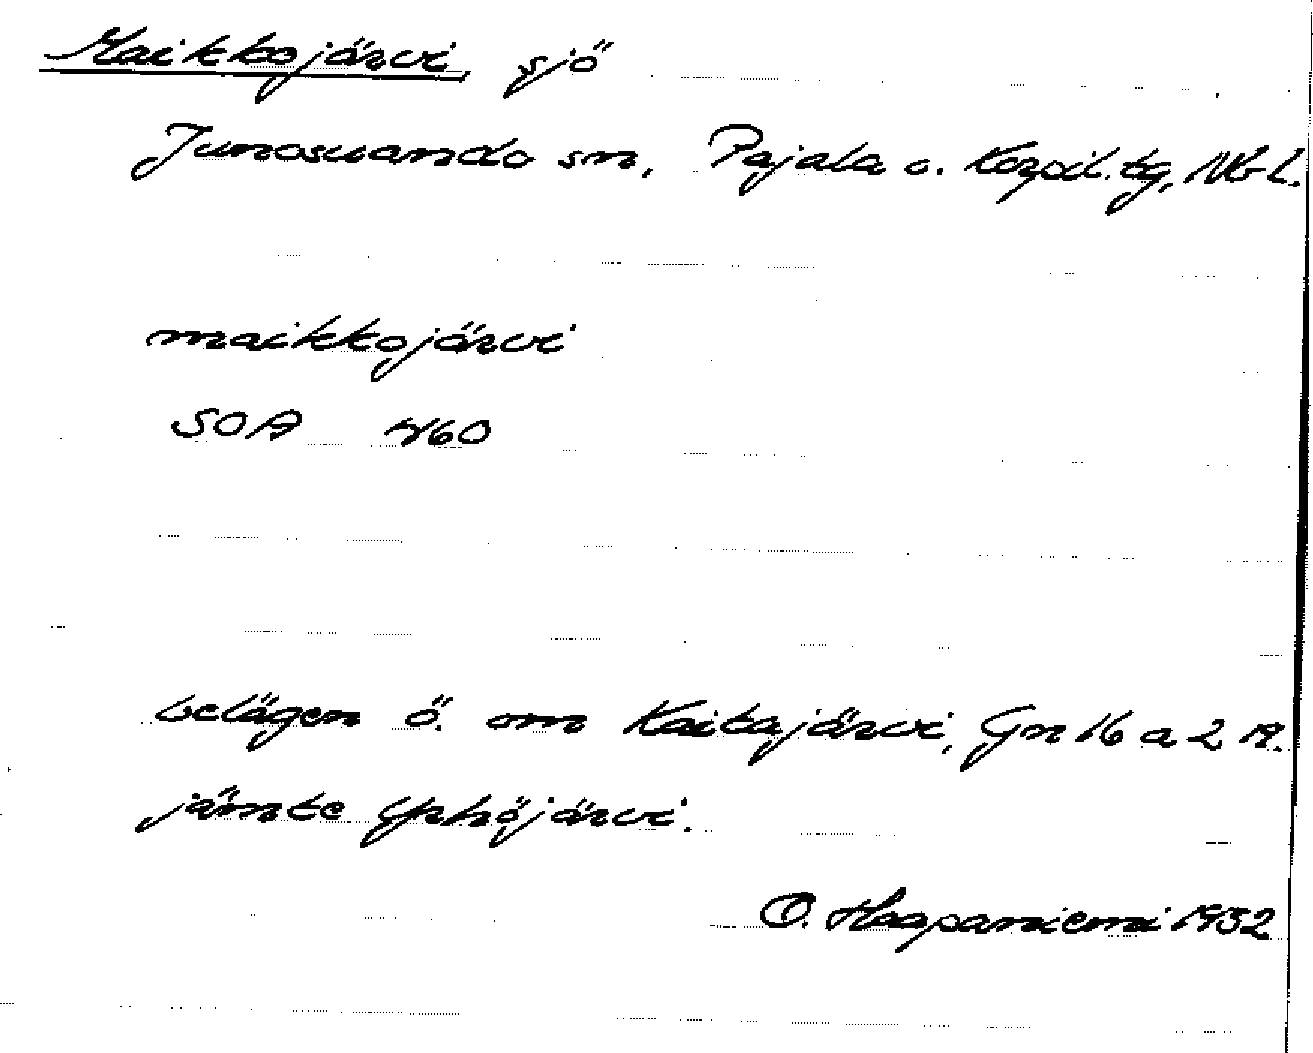 Maikkojärvi sjö
Junosuando sn, Pajala o. Korpil. tg, Nb l.
maikkojärvi
SOA 460
belägen ö. om Kaitajärvi, Gn 16 a 2 R.
jämte Yhöjärvi.
O. Haapaniemi 1932